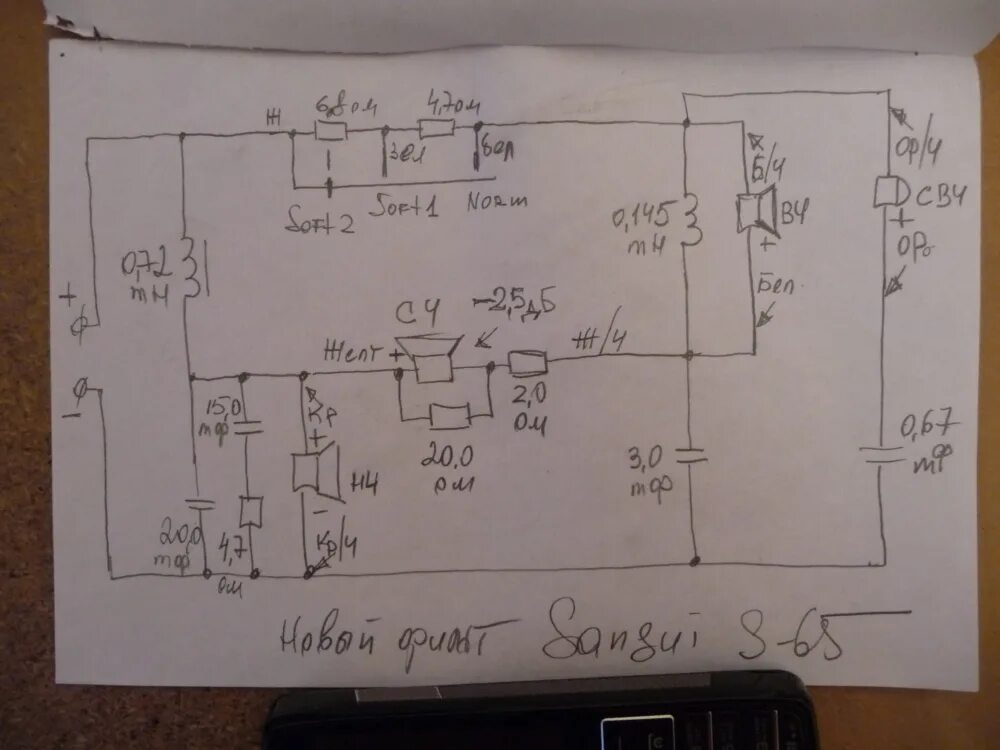 Ж
6,8 ом
4,7 ом
Зел
бел
Soft 2
Soft 1
Norm
0,72
mH
+
−
0,145
mH
Б/Ч
ВЧ
+
Бел
Ор/Ч
СВЧ
+
ОРо
СЧ
−2,5дБ
Желт
+
Ж/Ч
2,0
ом
20,0
ом
15,0
mф
Кр
+
НЧ
−
Кр/Ч
20,0
mф
4,7
ом
3,0
mф
0,67
mф
Новый фильт Sansui S-65